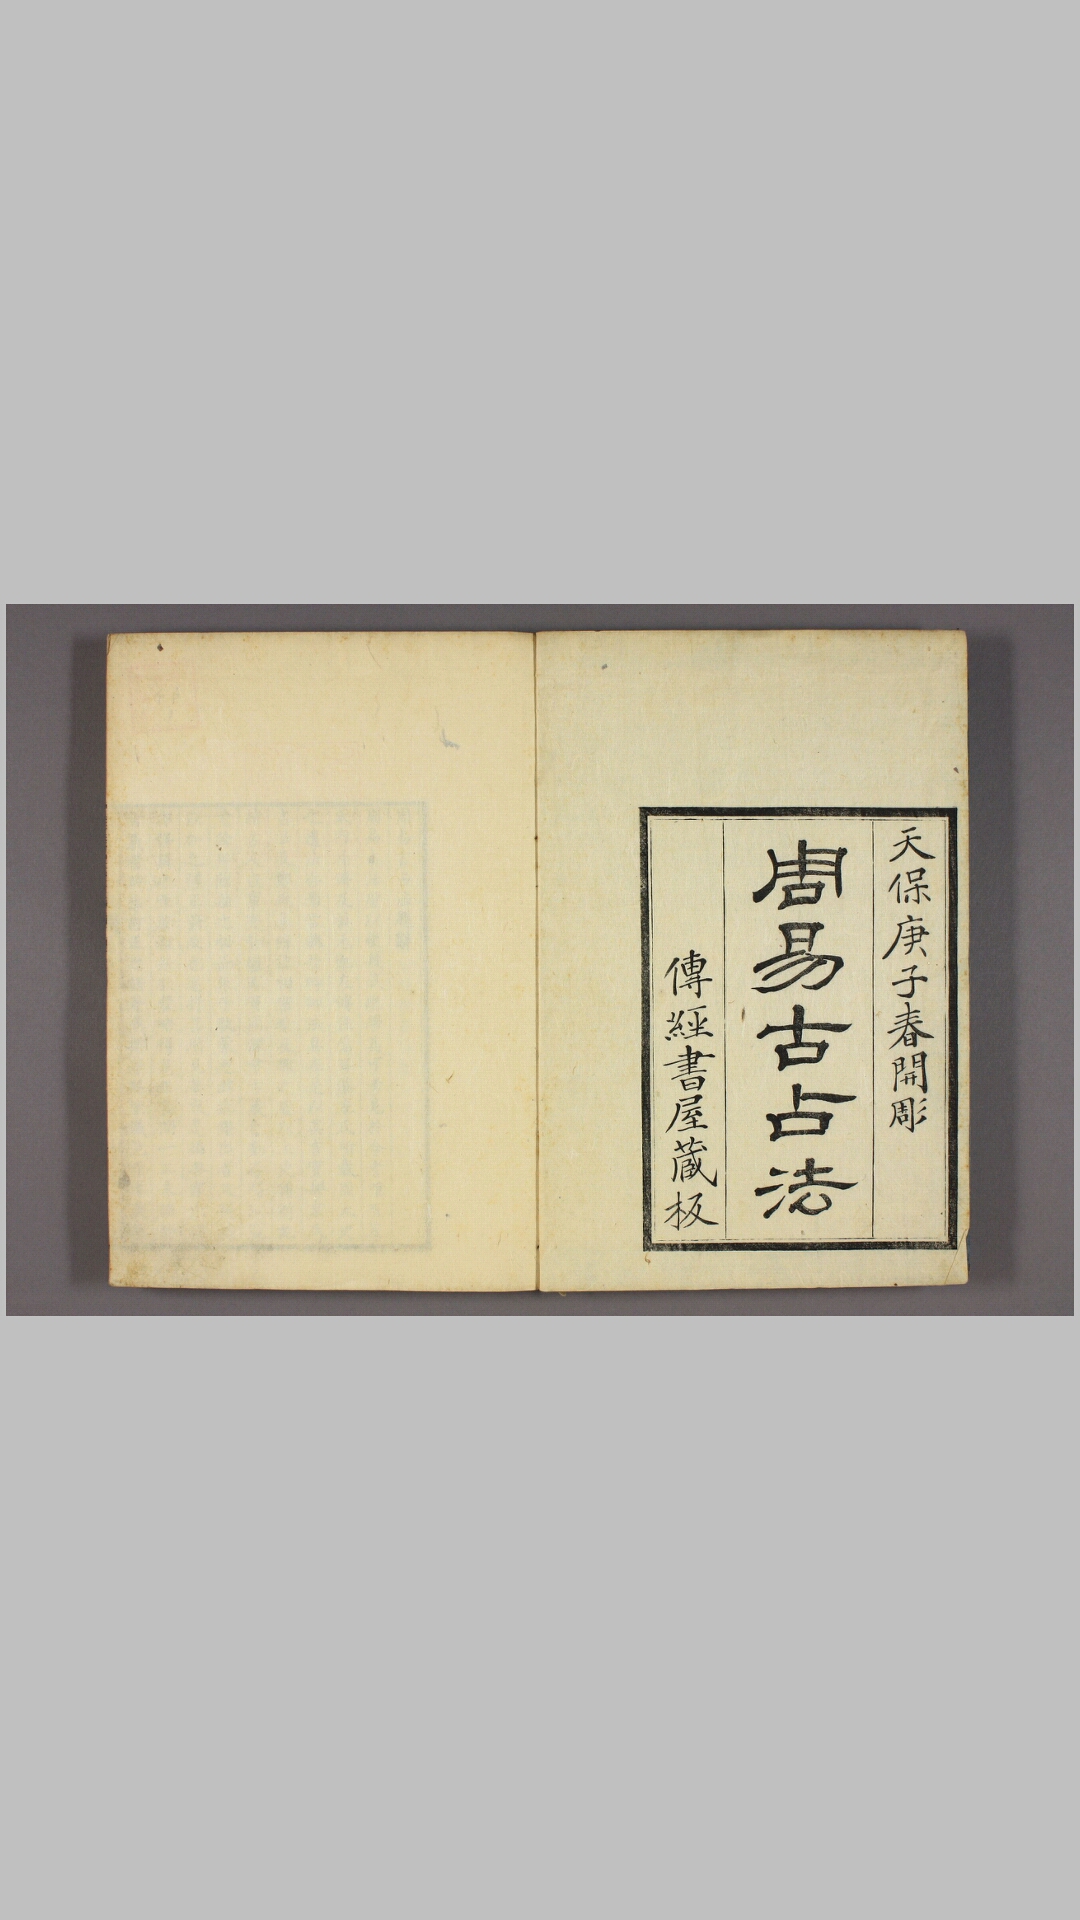 天保庚子春開彫
周易古占法
傳經書屋蔵板